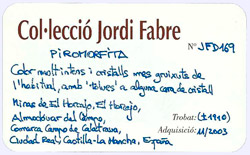 Col·lecció Jordi Fabre
Nº JFD169
PIROMORFITA
Color molt intens i cristalls mes gruixuts de
l'habitual, amb "tolves" a alguna cara de cristall
Mines de El Horcajo, El Horcajo,
Almodóvar del Campo,
Comarca Campo de Calatrava,
Ciudad Real, Castilla-la Mancha, España
Trobat: (±1910)
Adquisició: 11/2003